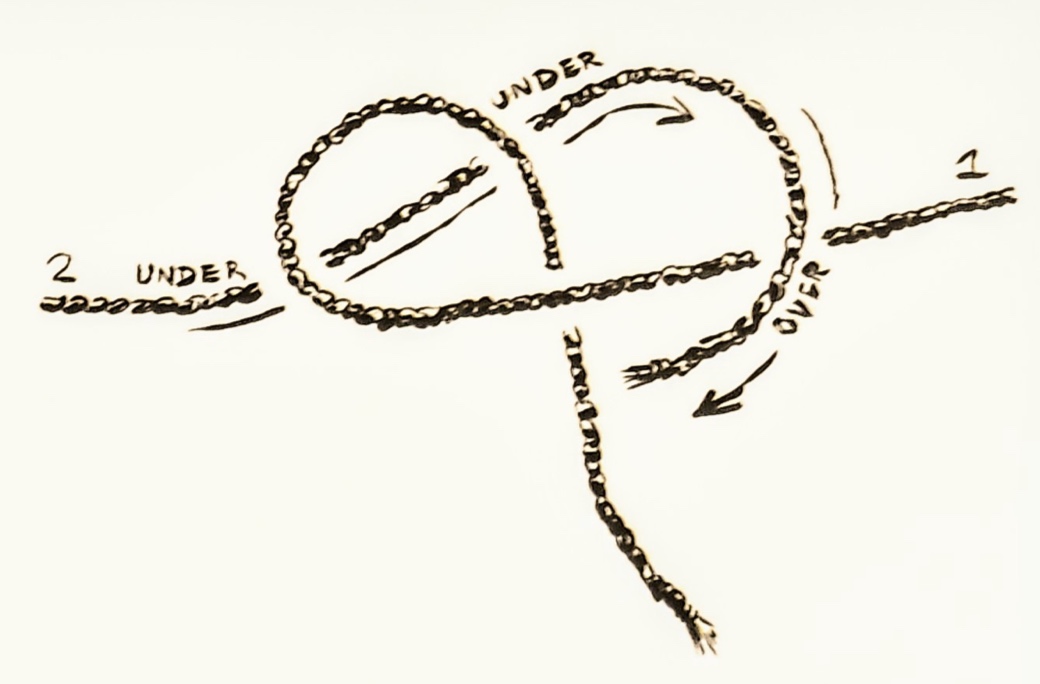 UNDER
1
2 UNDER
OVER